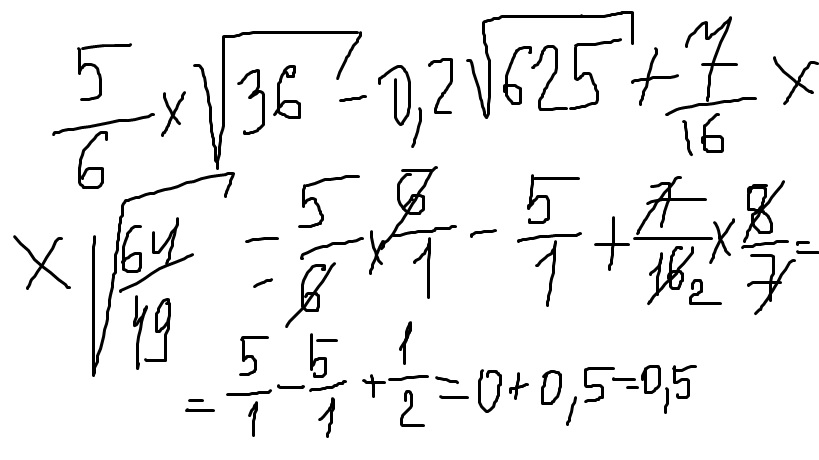 5/6 × √36 - 0,2√625 + 7/16 ×
× √(64/49) = 5/6 × 6/1 - 5/1 + 7/16 2 × 8/7 =
= 5/1 - 5/1 + 1/2 = 0 + 0,5 = 0,5